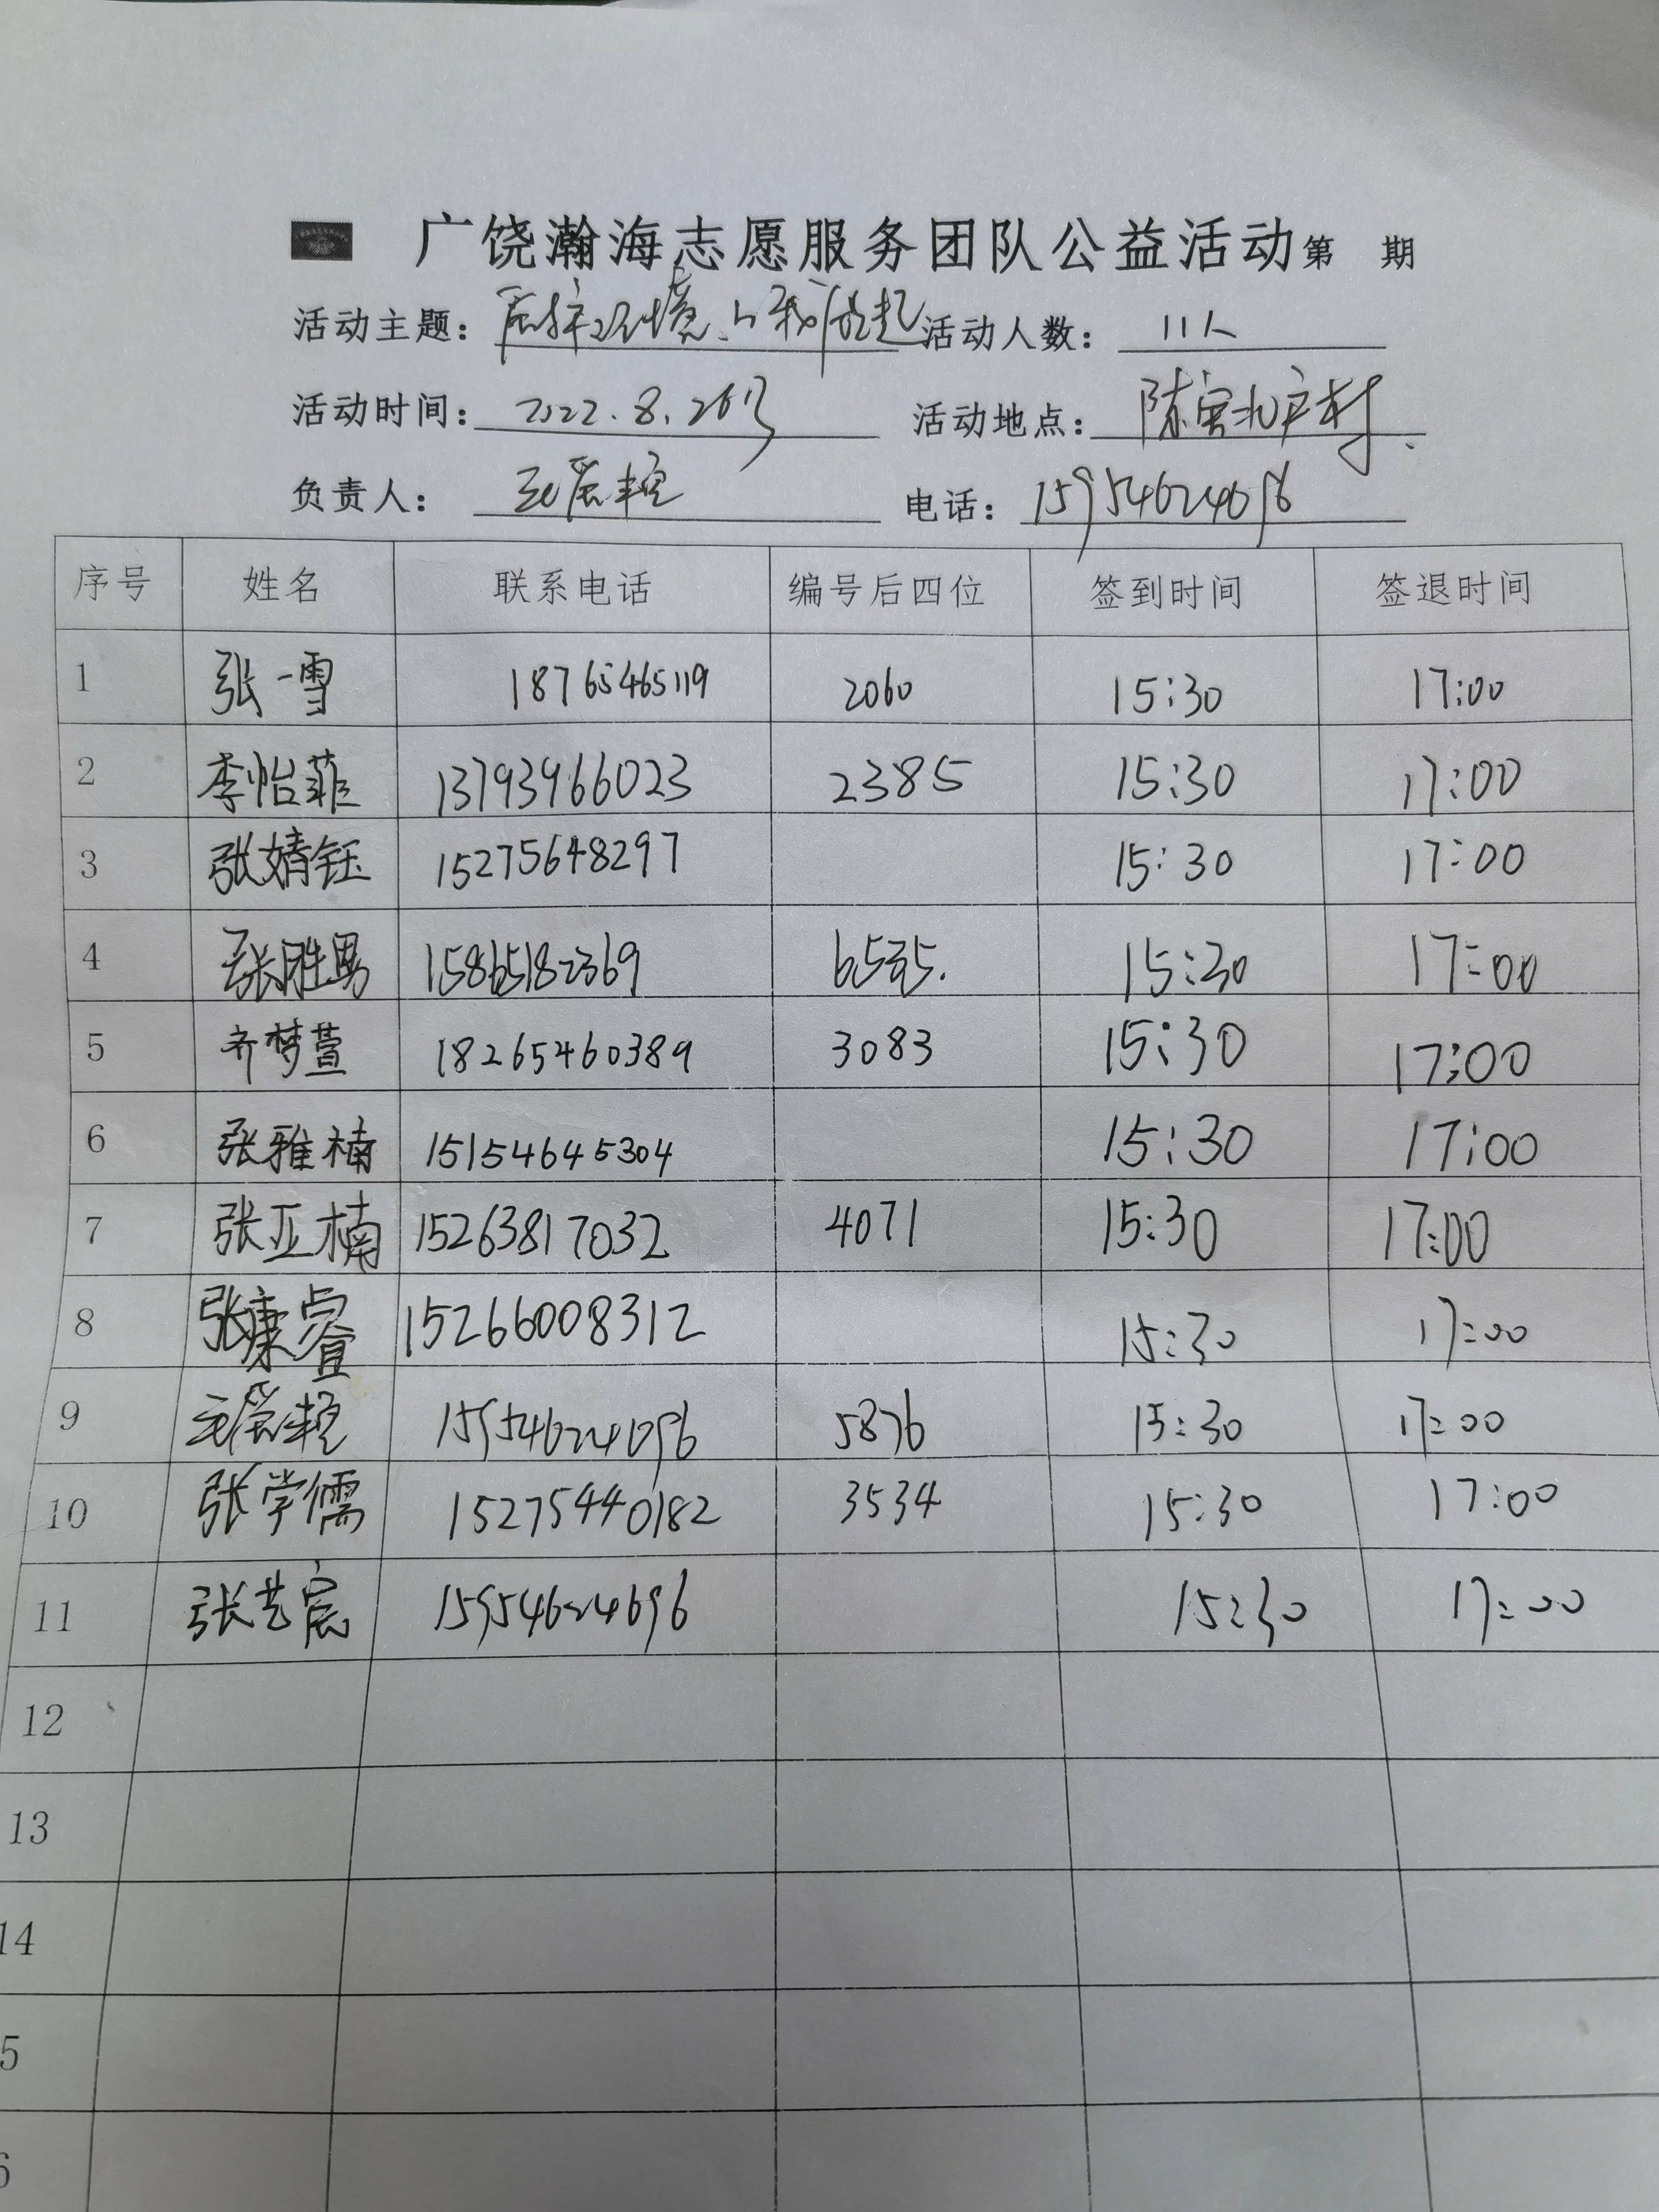 广饶瀚海志愿服务团队公益活动第 期
活动主题: 环境、 活动人数: 11人
活动时间: 2022.8.26 活动地点: 陈官 村
负责人: 电话: 15954624696
序号 姓名 联系电话 编号后四位 签到时间 签退时间
1 张一雪 18765465119 2060 15:30 17:00
2 李怡菲 13793966023 2385 15:30 17:00
3 张婧钰 15275648297 15:30 17:00
4 张胜男 15865182369 15:30 17:00
5 齐梦萱 18265460389 3083 15:30 17:00
6 张雅楠 15154645304 15:30 17:00
7 张亚楠 15263817032 4071 15:30 17:00
8 张康睿 15266008312 15:30 17:00
9 15954624696 5876 15:30 17:00
10 张学儒 15275440182 3534 15:30 17:00
11 张艺宸 15954624696 15:30 17:00
12
13
14
5